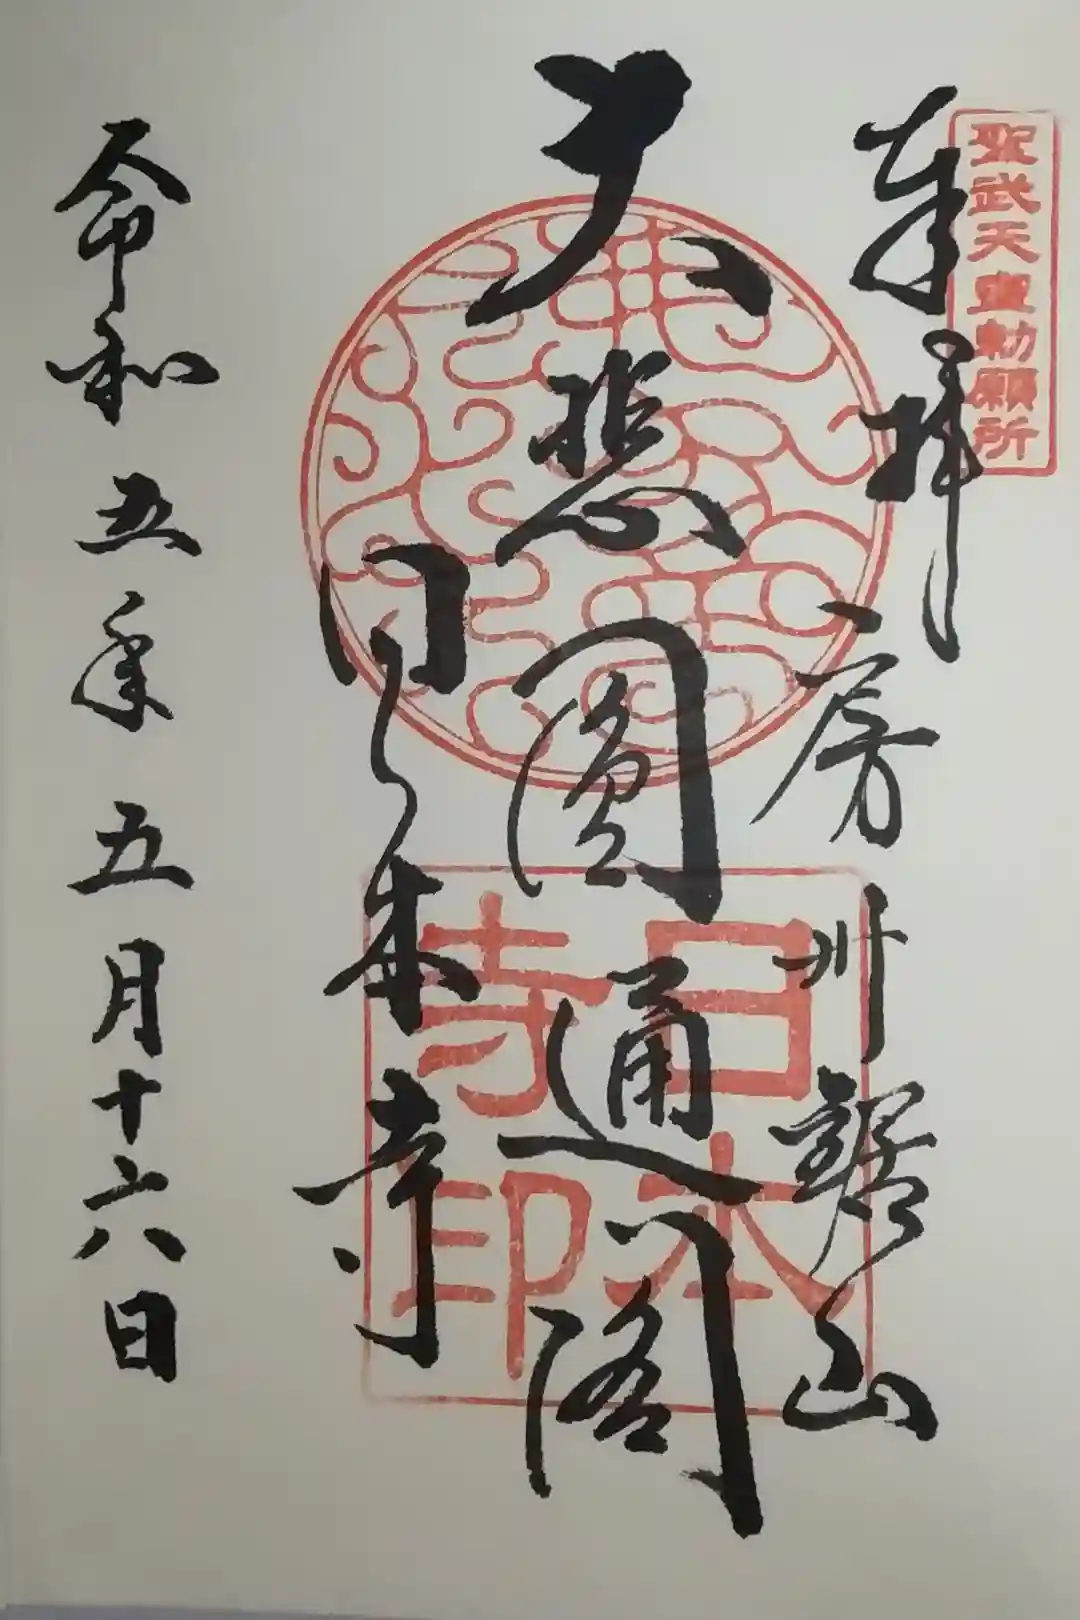 聖武天皇勅願所
奉拝
房州鋸山
大悲圓通閣
日本寺
日本寺印
令和五年五月十六日